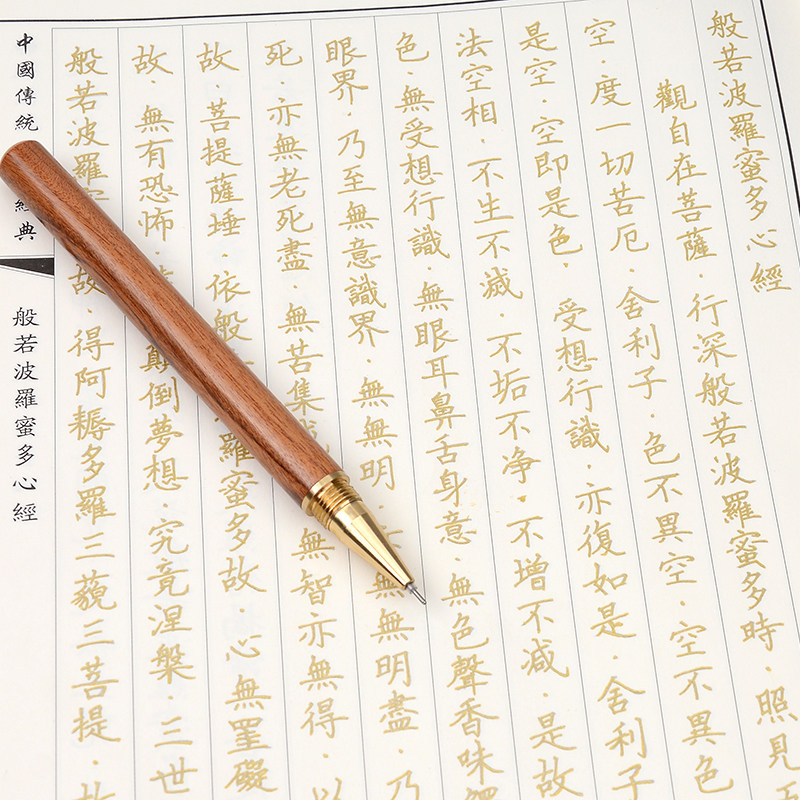 般若波羅蜜多心經
觀自在菩薩·行深般若波羅蜜多時·照見
空·度一切苦厄·舍利子·色不異空·空不異色
是空·空即是色·受想行識·亦復如是·舍利子
法空相·不生不滅·不垢不净·不增不减·是故
色·無受想行識·無眼耳鼻舌身意·無色聲香味
眼界·乃至無意識界·無無明·無明盡·乃
死·亦無老死盡·無苦集無智亦無得·以
故·菩提薩埵·依般羅蜜多故·心無罣礙
故·無有恐怖·顛倒夢想·究竟涅槃·三世
般若波羅故·得阿耨多羅三藐三菩提·故
中國傳統經典
般若波羅蜜多心經